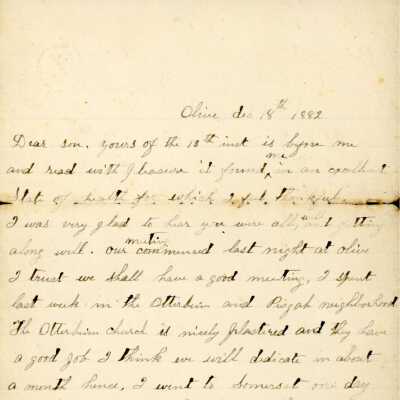 Olive dec 18th 1882
Dear son. yours of the 10th inst is byre me
and read with pleasure it found me in an excellent
Stat of health for which I feel thankful
I was very glad to hear you were all well and getting
along well. our meeting commenced last night at olive
I trust we shall have a good meeting, I spent
last week in the Otterbein and Pisgah neighborhood
The Otterbein church is nicely plastred and they have
a good job I think we will dedicate in about
a month hence, I went to Somerset one day